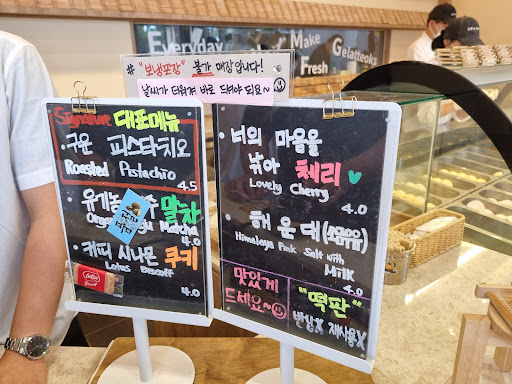 Everyday
We Make
Fresh Gelatteoks
# "보냉포장" 불가 매장입니다!
날씨가 더워져 바로 드셔야 되요~
Signature 대표메뉴
· 구운 피스타치오
Roasted Pistachio
4.5
유기농 말차
Matcha
4.0
· 캐디 시나몬 쿠키
Lotus Biscoff
4.0
· 너의 마음을
낚아 체리
Lovely Cherry
4.0
· 해운대(소금우유)
Himalaya Pink Salt with
Milk
4.0
맛있게
드세요~
"떡판"
반납X 재사용X